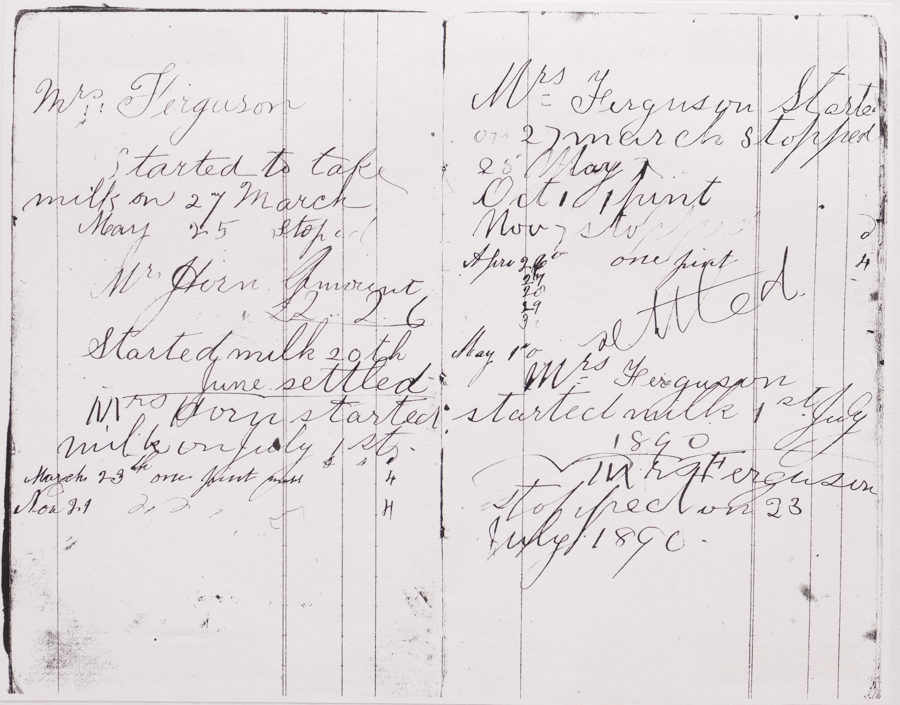 Mrs Ferguson
Started to take
milk on 27 March
May 25 Stop
Mr Horn Amount
22 2 6
Started milk 20th
June settled
Mrs Horn started
milk on july 1 st
March 23 one pint 4
Nov 21 2 2 4
Mrs Ferguson Starte
on 27 march stopped
25 May
Oct 1 1 pint
Nov 7 stopped 2
Apr 26 one pint 4
27
28
29
3
settled.
May 1
Mrs Ferguson
started milk 1 st July
1890
Mrs Ferguson
stopped on 23
July 1890.